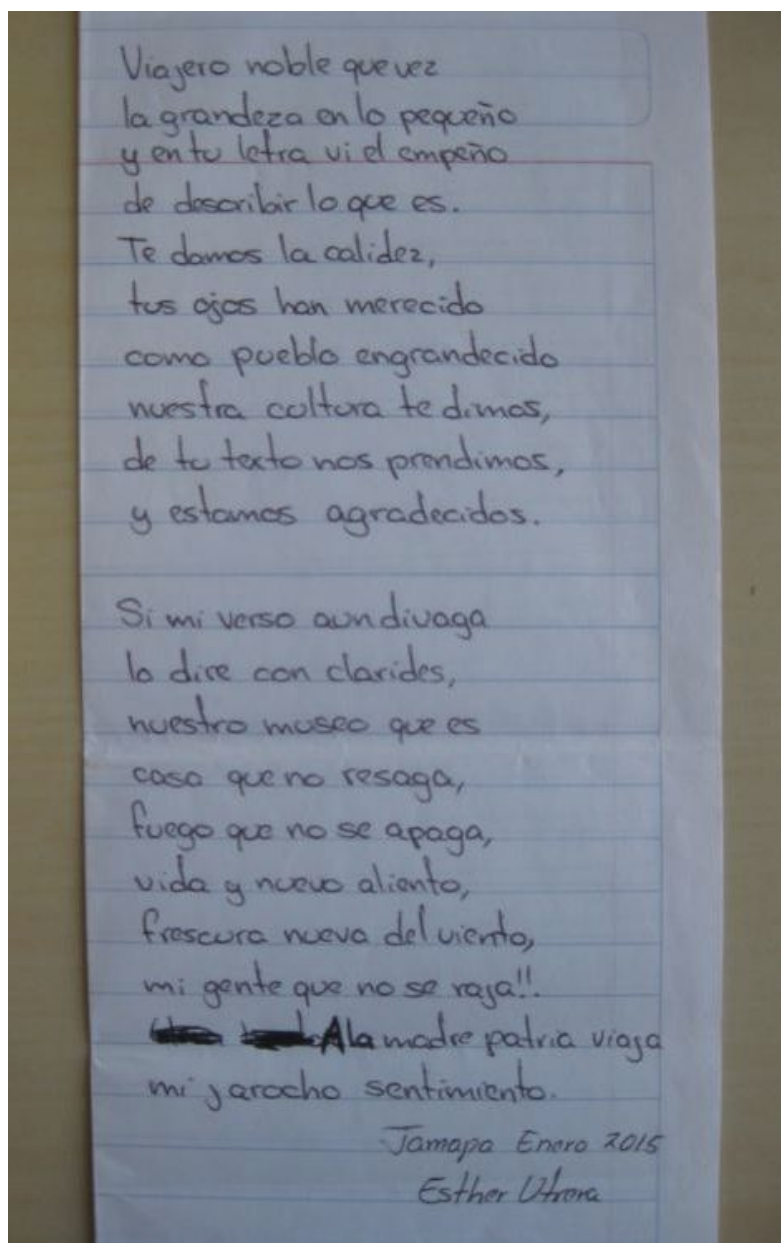 Viajero noble que vez
la grandeza en lo pequeño
y en tu letra vi el empeño
de describir lo que es.
Te damos la calidez,
tus ojos han merecido
como pueblo engrandecido
nuestra cultura te dimos,
de tu texto nos prendimos,
y estamos agradecidos.
Si mi verso aun divaga
lo dire con clarides,
nuestro museo que es
casa que no resaga,
fuego que no se apaga,
vida y nuevo aliento,
frescura nueva del viento,
mi gente que no se raja!!.
A la madre patria viaja
mi jarocho sentimiento.
Jamapa Enero 2015
Esther Utrera